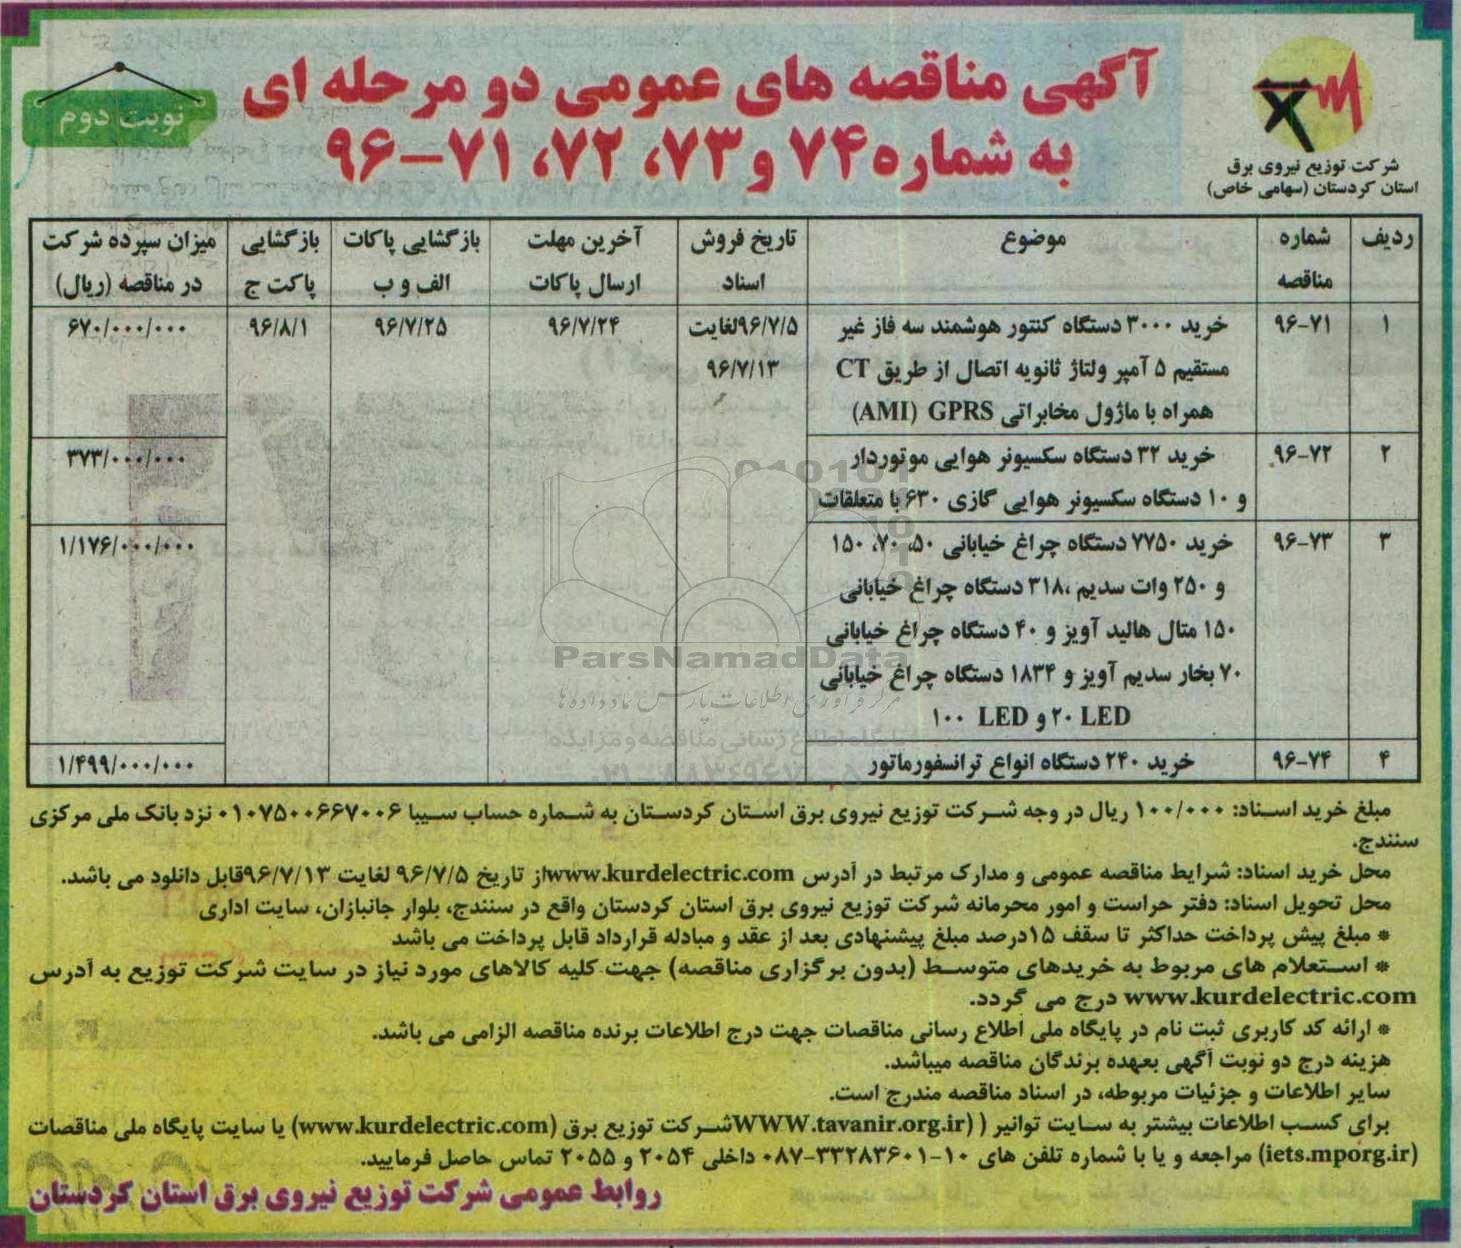 آگهی مناقصه های عمومی دو مرحله ای
به شماره ۷۴ و ۷۳، ۷۲، ۷۱-۹۶
نوبت دوم
شرکت توزیع نیروی برق
استان کردستان (سهامی خاص)
ردیف شماره مناقصه موضوع تاریخ فروش اسناد آخرین مهلت ارسال پاکات بازگشایی پاکات الف و ب بازگشایی پاکت ج میزان سپرده شرکت در مناقصه (ریال)
۱ ۹۶-۷۱ خرید ۳۰۰۰ دستگاه کنتور هوشمند سه فاز غیر ۹۶/۷/۵لغایت ۹۶/۷/۲۴ ۹۶/۷/۲۵ ۹۶/۸/۱ ۶۷۰/۰۰۰/۰۰۰
مستقیم ۵ آمپر ولتاژ ثانویه اتصال از طریق CT ۹۶/۷/۱۳
همراه با ماژول مخابراتی GPRS (AMI)
۲ ۹۶-۷۲ خرید ۳۲ دستگاه سکسیونر هوایی موتوردار ۳۷۳/۰۰۰/۰۰۰
و ۱۰ دستگاه سکسیونر هوایی گازی ۶۳۰ با متعلقات
۳ ۹۶-۷۳ خرید ۷۷۵۰ دستگاه چراغ خیابانی ۵۰، ۷۰، ۱۵۰ ۱/۱۷۶/۰۰۰/۰۰۰
و ۲۵۰ وات سدیم ،۳۱۸ دستگاه چراغ خیابانی
۱۵۰ متال هالید آویز و ۴۰ دستگاه چراغ خیابانی
۷۰ بخار سدیم آویز و ۱۸۳۴ دستگاه چراغ خیابانی
۲۰ LED و ۱۰۰ LED
۴ ۹۶-۷۴ خرید ۲۴۰ دستگاه انواع ترانسفورماتور ۱/۴۹۹/۰۰۰/۰۰۰
ParsNamadData
مرکز فرآوری اطلاعات پارس نماد داده ها
پایگاه اطلاع رسانی مناقصه و مزایده
مبلغ خرید اسناد: ۱۰۰/۰۰۰ ریال در وجه شرکت توزیع نیروی برق استان کردستان به شماره حساب سیبا ۰۱۰۷۵۰۰۶۶۷۰۰۶ نزد بانک ملی مرکزی
سنندج.
محل خرید اسناد: شرایط مناقصه عمومی و مدارک مرتبط در آدرس www.kurdelectric.comاز تاریخ ۹۶/۷/۵ لغایت ۹۶/۷/۱۳قابل دانلود می باشد.
محل تحویل اسناد: دفتر حراست و امور محرمانه شرکت توزیع نیروی برق استان کردستان واقع در سنندج، بلوار جانبازان، سایت اداری
* مبلغ پیش پرداخت حداکثر تا سقف ۱۵درصد مبلغ پیشنهادی بعد از عقد و مبادله قرارداد قابل پرداخت می باشد
* استعلام های مربوط به خریدهای متوسط (بدون برگزاری مناقصه) جهت کلیه کالاهای مورد نیاز در سایت شرکت توزیع به آدرس
www.kurdelectric.com درج می گردد.
* ارائه کد کاربری ثبت نام در پایگاه ملی اطلاع رسانی مناقصات جهت درج اطلاعات برنده مناقصه الزامی می باشد.
هزینه درج دو نوبت آگهی بعهده برندگان مناقصه میباشد.
سایر اطلاعات و جزئیات مربوطه، در اسناد مناقصه مندرج است.
برای کسب اطلاعات بیشتر به سایت توانیر ( (WWW.tavanir.org.irشرکت توزیع برق (www.kurdelectric.com) یا سایت پایگاه ملی مناقصات
(iets.mporg.ir) مراجعه و یا با شماره تلفن های ۱۰-۰۸۷-۳۳۲۸۳۶۰۱ داخلی ۲۰۵۴ و ۲۰۵۵ تماس حاصل فرمایید.
روابط عمومی شرکت توزیع نیروی برق استان کردستان